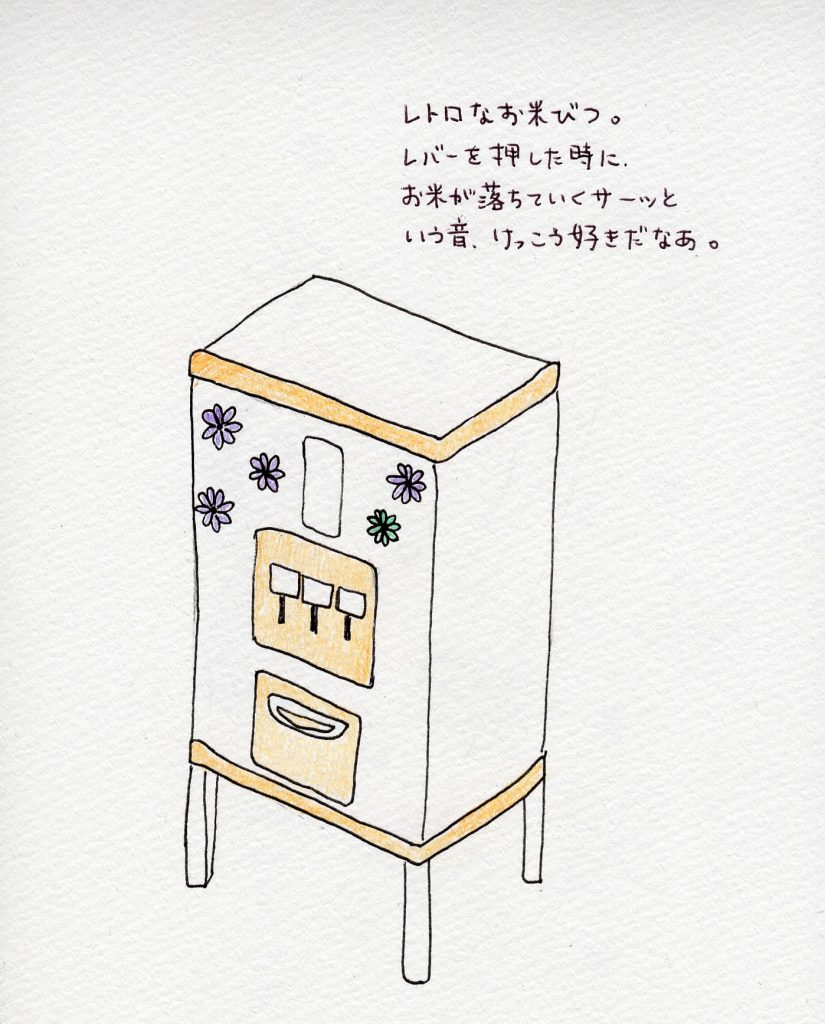 レトロなお米びつ。
レバーを押した時に、
お米が落ちていくサーッと
いう音、けっこう好きだなあ。